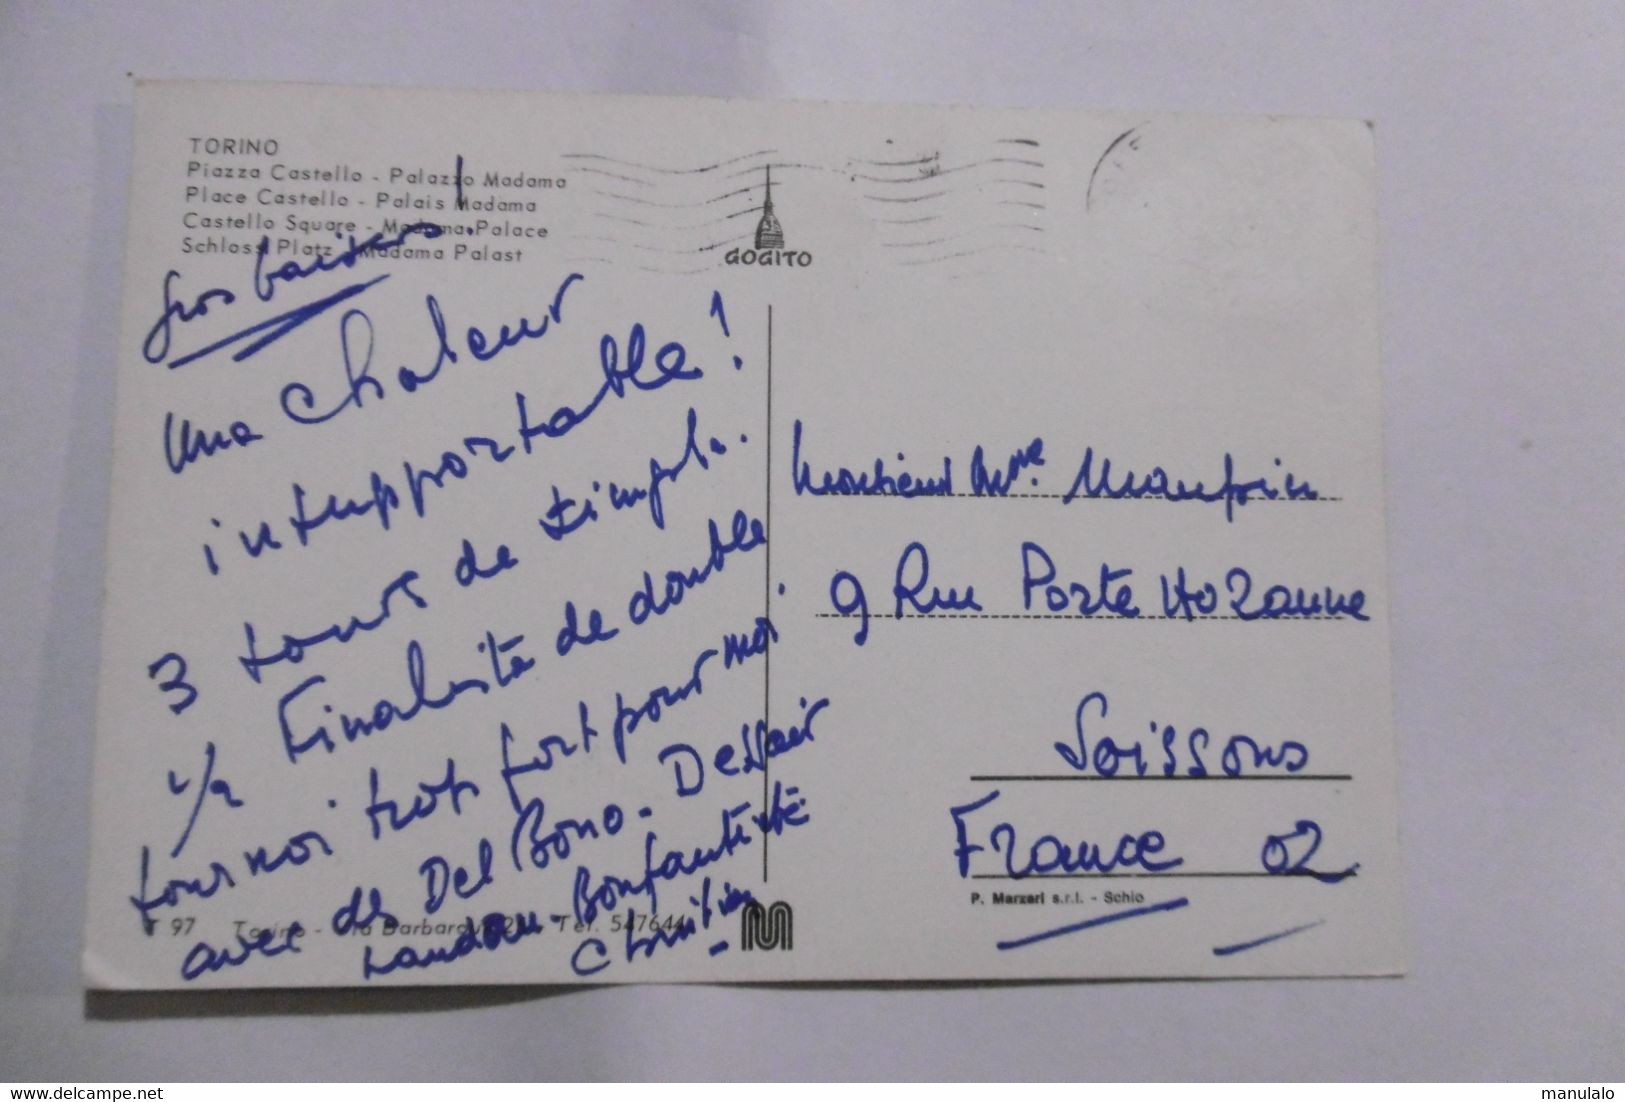 TORINO
Piazza Castello - Palazzo Madama
Place Castello - Palais Madama
Castello Square - Madama Palace
Schloss Platz - Madama Palast
GOGITO
Gros baisers.
Une chaleur
insupportable!
3 tours de simple.
1/2 Finaliste de double
tournoi trop fort pour moi.
avec des Del Bono - Dessair
Landau - Bonfanti etc
Christian
Monsieur Mme
9 Rue Porte Hozanne
Soissons
France 02
P. Marzari s.r.l. - Schio
T 97 Torino - Via Barbaroux 2 - Tel. 547644
manulalo